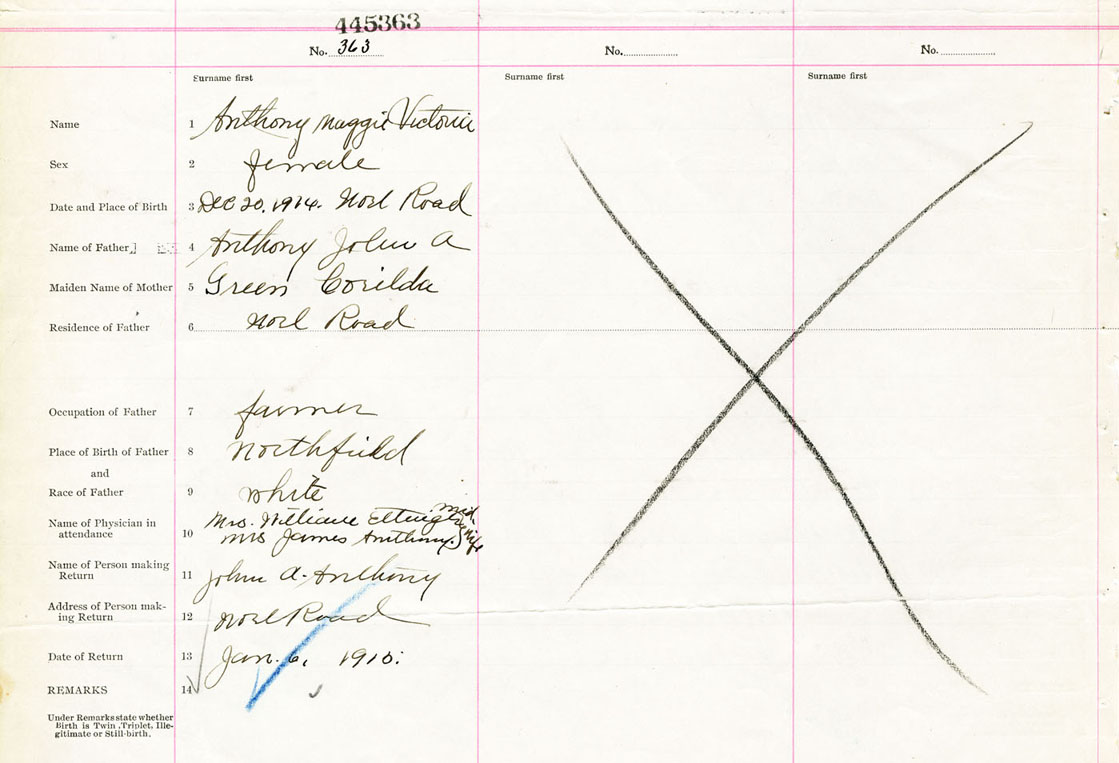 445363
No. 363 No. No.
Surname first Surname first Surname first
Name 1 Anthony Maggie Victoria
Sex 2 female
Date and Place of Birth 3 Dec 20, 1914. Noel Road
Name of Father 4 Anthony John A
Maiden Name of Mother 5 Green Corilda
Residence of Father 6 Noel Road
Occupation of Father 7 farmer
Place of Birth of Father 8 Northfield
and
Race of Father 9 white
Name of Physician in attendance 10 Mrs. William
Mrs James Anthony } Midwife
Name of Person making Return 11 John A. Anthony
Address of Person making Return 12 Noel Road
Date of Return 13 Jan. 6, 1915.
REMARKS 14
Under Remarks state whether
Birth is Twin, Triplet, Ille-
gitimate or Still-birth.